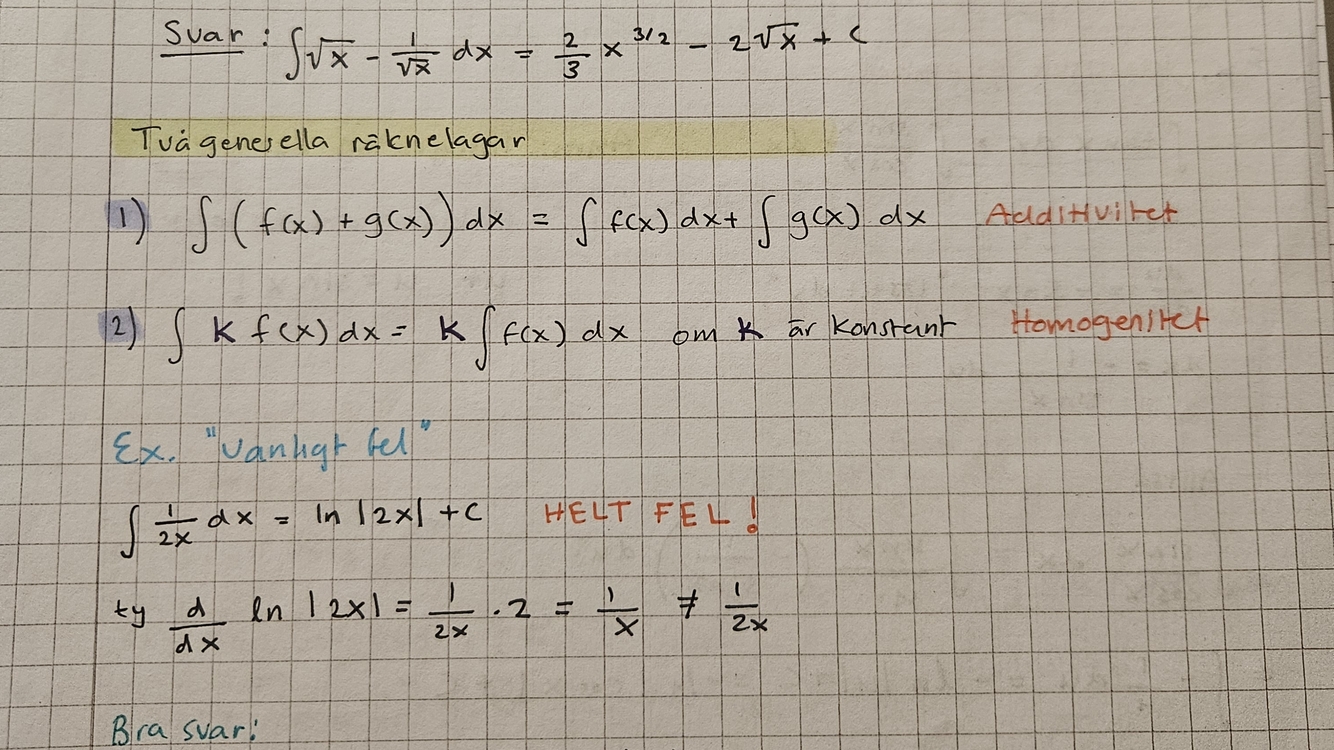 Svar: ∫√x - 1/√x dx = 2/3 x^3/2 - 2√x + C
Två generella räknelagar
1) ∫(f(x) + g(x)) dx = ∫ f(x) dx + ∫ g(x) dx Additivitet
2) ∫ K f(x) dx = K ∫ f(x) dx om K är konstant Homogenitet
Ex. "Vanligt fel"
∫ 1/2x dx = ln |2x| + C HELT FEL!
ty d/dx ln |2x| = 1/2x · 2 = 1/x ≠ 1/2x
Bra svar: